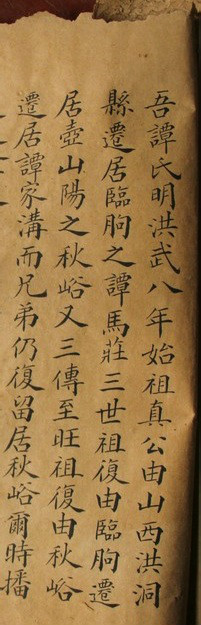 吾譚氏明洪武八年始祖真公由山西洪洞
縣遷居臨朐之譚馬莊三世祖復由臨朐遷
居壺山陽之秋峪又三傳至旺祖復由秋峪
遷居譚家溝而兄弟仍復留居秋峪爾時播